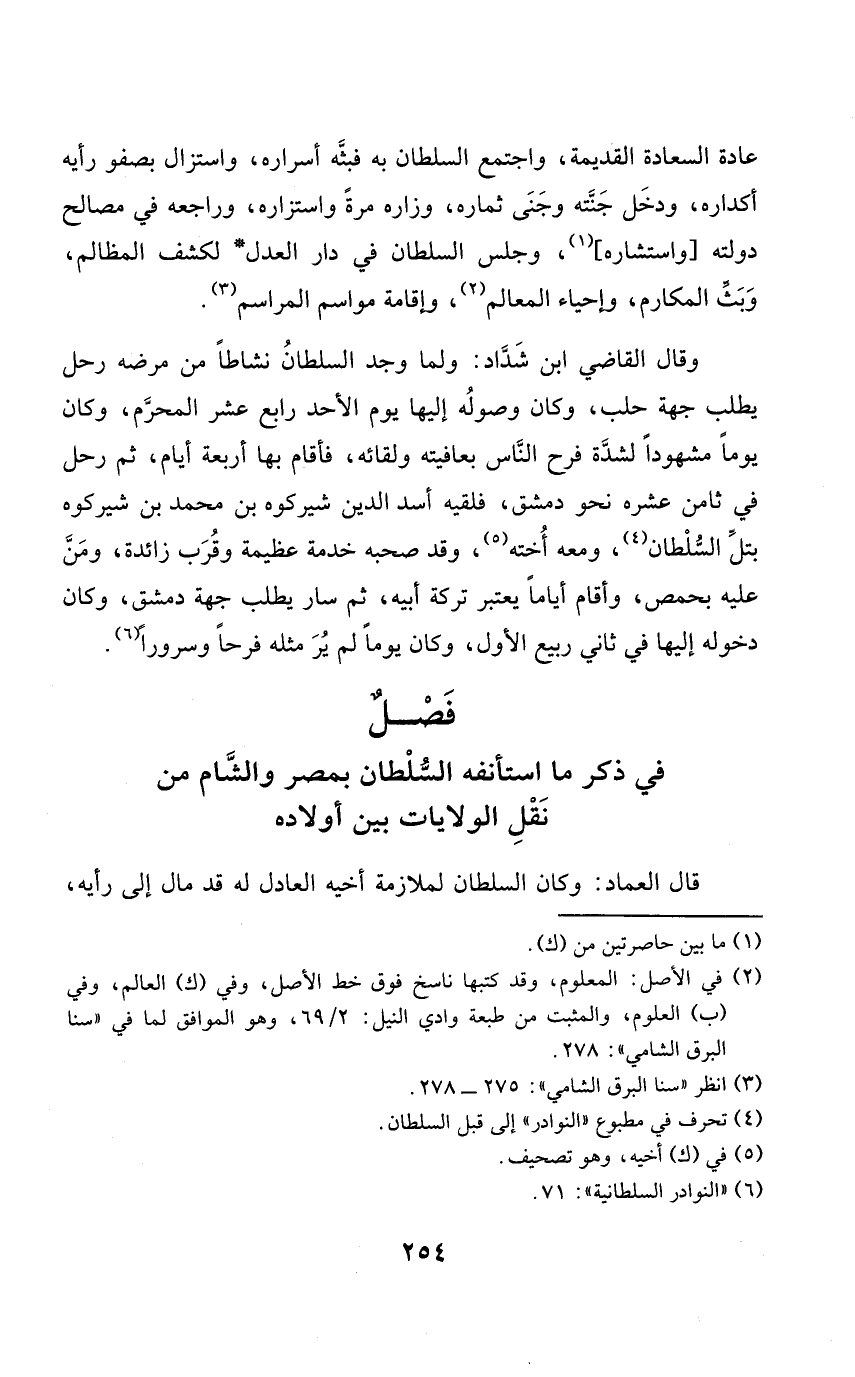 عادة السعادة القديمة، واجتمع السلطان به فبثَّه أسراره، واستزال بصفو رأيه
أكداره، ودخَل جَنَّته وجَنَى ثماره، وزاره مرةً واستزاره، وراجعه في مصالح
دولته [واستشاره](١)، وجلس السلطان في دار العدل* لكشف المظالم،
وَبَثِّ المكارم، وإحياء المعالم(٢)، وإقامة مواسم المراسم(٣).
وقال القاضي ابن شَدَّاد: ولما وجد السلطانُ نشاطاً من مرضه رحل
يطلب جهة حلب، وكان وصولُه إليها يوم الأحد رابع عشر المحرَّم، وكان
يوماً مشهوداً لشدَّة فرح النَّاس بعافيته ولقائه، فأقام بها أربعة أيام، ثم رحل
في ثامن عشره نحو دمشق، فلقيه أسد الدين شيركوه بن محمد بن شيركوه
بتلِّ السُّلْطان(٤)، ومعه أُخته(٥)، وقد صحبه خدمة عظيمة وقُرَب زائدة، ومَنَّ
عليه بحمص، وأقام أياماً يعتبر تركة أبيه، ثم سار يطلب جهة دمشق، وكان
دخوله إليها في ثاني ربيع الأول، وكان يوماً لم يُرَ مثله فرحاً وسروراً(٦).
فَصْـــلٌ
في ذكر ما استأنفه السُّلْطان بمصر والشَّام من
نَقْلِ الولايات بين أولاده
قال العماد: وكان السلطان لملازمة أخيه العادل له قد مال إلى رأيه،
(١) ما بين حاصرتين من (ك).
(٢) في الأصل: المعلوم، وقد كتبها ناسخ فوق خط الأصل، وفي (ك) العالم، وفي
(ب) العلوم، والمثبت من طبعة وادي النيل: ٦٩/٢، وهو الموافق لما في «سنا
البرق الشامي»: ٢٧٨.
(٣) انظر «سنا البرق الشامي»: ٢٧٥ ــ ٢٧٨.
(٤) تحرف في مطبوع «النوادر» إلى قبل السلطان.
(٥) في (ك) أخيه، وهو تصحيف.
(٦) «النوادر السلطانية»: ٧١.
٢٥٤